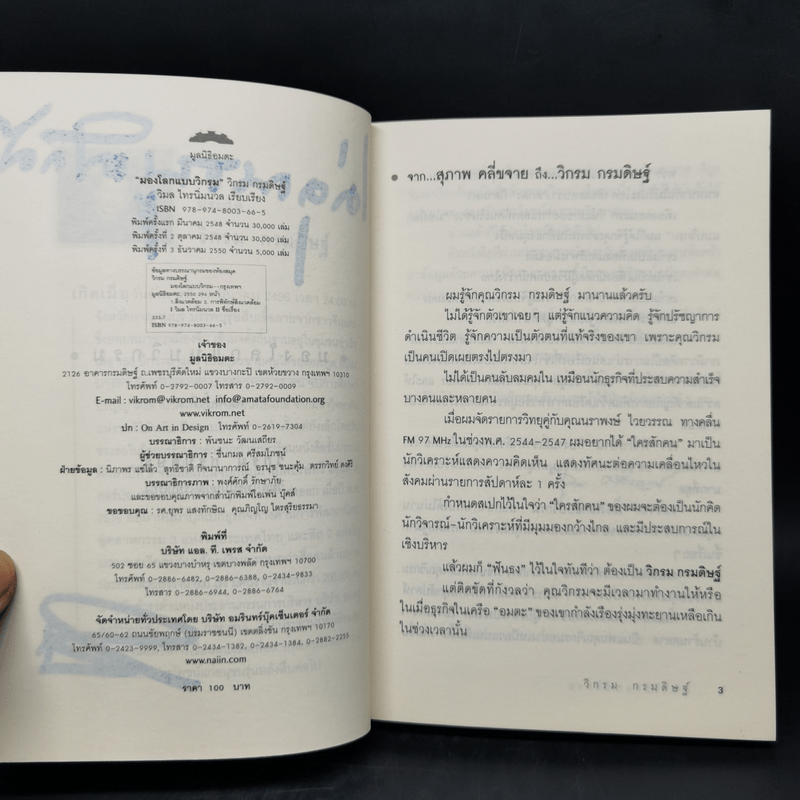 มูลนิธิอมตะ
"มองโลกแบบวิกรม" วิกรม กรมดิษฐ์
วิมล ไทรนิ่มนวล เรียบเรียง
ISBN 978-974-8003-66-5
พิมพ์ครั้งแรก มีนาคม 2548 จำนวน 30,000 เล่ม
พิมพ์ครั้งที่ 2 ตุลาคม 2548 จำนวน 30,000 เล่ม
พิมพ์ครั้งที่ 3 ธันวาคม 2550 จำนวน 5,000 เล่ม
ข้อมูลทางบรรณานุกรมของหอสมุด
วิกรม กรมดิษฐ์
มองโลกแบบวิกรม--กรุงเทพฯ
มูลนิธิอมตะ, 2550 296 หน้า
1.สิ่งแวดล้อม 2. การพิทักษ์สิ่งแวดล้อม
I วิมล ไทรนิ่มนวล II ชื่อเรื่อง
333.7
ISBN 978-974-8003-66-5
เจ้าของ
มูลนิธิอมตะ
2126 อาคารกรมดิษฐ์ ถ.เพชรบุรีตัดใหม่ แขวงบางกะปิ เขตห้วยขวาง กรุงเทพฯ 10310
โทรศัพท์ 0-2792-0007 โทรสาร 0-2792-0009
E-mail : vikrom@vikrom.net info@amatafoundation.org
www.vikrom.net
ปก : On Art in Design โทรศัพท์ 0-2619-7304
บรรณาธิการ : พันชนะ วัฒนเสถียร
ผู้ช่วยบรรณาธิการ : ชื่นกมล ศรีสมโภชน์
ฝ่ายข้อมูล : นิภาพร แซ่ไล้ว สุทธิชาติ กิจนานาการณ์ อรนุช ชนะคุ้ม ดรรกวิทย์ คงศิริ
บรรณาธิการภาพ : พงศ์ศักดิ์ รักษาภัย
และขอขอบคุณภาพจากสำนักพิมพ์โอเพ่น บุ๊คส์
ขอขอบคุณ : รศ.ยุพร แสงทักษิณ คุณภิญโญ ไตรสุริยธรรมา
พิมพ์ที่
บริษัท แอล. ที. เพรส จำกัด
502 ซอย 65 แขวงบางบำหรุ เขตบางพลัด กรุงเทพฯ 10700
โทรศัพท์ 0-2886-6482, 0-2886-6388, 0-2434-9833
โทรสาร 0-2886-6944, 0-2886-6764
จัดจำหน่ายทั่วประเทศโดย บริษัท อมรินทร์บุ๊คเซ็นเตอร์ จำกัด
65/60-62 ถนนชัยพฤกษ์ (บรมราชชนนี) เขตตลิ่งชัน กรุงเทพฯ 10170
โทรศัพท์ 0-2423-9999, โทรสาร 0-2434-1382, 0-2434-1384, 0-2882-2255
www.naiin.com
ราคา 100 บาท
จาก...สุภาพ คลี่ขจาย ถึง...วิกรม กรมดิษฐ์
ผมรู้จักคุณวิกรม กรมดิษฐ์ มานานแล้วครับ
ไม่ได้รู้จักตัวเขาเฉยๆ แต่รู้จักแนวความคิด รู้จักปรัชญาการ
ดำเนินชีวิต รู้จักความเป็นตัวตนที่แท้จริงของเขา เพราะคุณวิกรม
เป็นคนเปิดเผยตรงไปตรงมา
ไม่ได้เป็นคนลับลมคมใน เหมือนนักธุรกิจที่ประสบความสำเร็จ
บางคนและหลายคน
เมื่อผมจัดรายการวิทยุคู่กับคุณนราพงษ์ ไวยวรรณ ทางคลื่น
FM 97 MHz ในช่วงพ.ศ. 2544-2547 ผมอยากได้ "ใครสักคน" มาเป็น
นักวิเคราะห์แสดงความคิดเห็น แสดงทัศนะต่อความเคลื่อนไหวใน
สังคมผ่านรายการสัปดาห์ละ 1 ครั้ง
กำหนดสเปกไว้ในใจว่า "ใครสักคน" ของผมจะต้องเป็นนักคิด
นักวิจารณ์-นักวิเคราะห์ที่มีมุมมองกว้างไกล และมีประสบการณ์ใน
เชิงบริหาร
แล้วผมก็ "ฟันธง" ไว้ในใจทันทีว่า ต้องเป็น วิกรม กรมดิษฐ์
แต่ติดขัดที่กังวลว่า คุณวิกรมจะมีเวลามาทำงานให้หรือ
ในเมื่อธุรกิจในเครือ "อมตะ" ของเขากำลังเรืองรุ่งพุ่งทะยานเหลือเกิน
ในช่วงเวลานั้น
วิกรม กรมดิษฐ์ 3